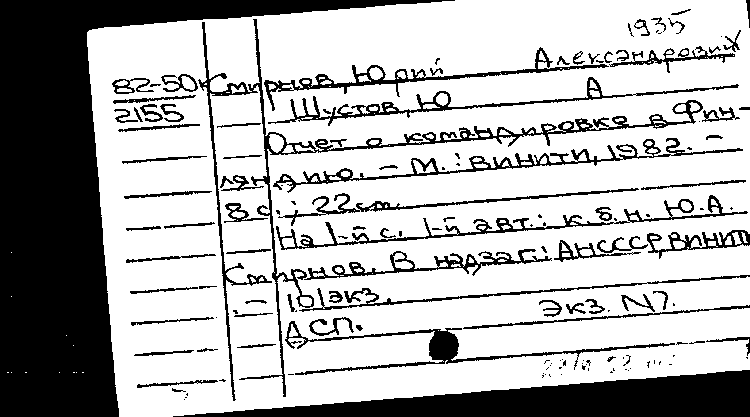 1935
82-50К Смирнов, Юрий Александрович
2155 Шустов, Ю А
Отчет о командировке в Фин-
ляндию. – М.: ВИНИТИ, 1982. –
8 с.; 22 см.
На 1-й с. 1-й авт.: к.б.н. Ю.А.
Смирнов. В надзаг.: АНСССР, ВИНИТИ
. – 101 экз.
ДСП. Экз. N7.